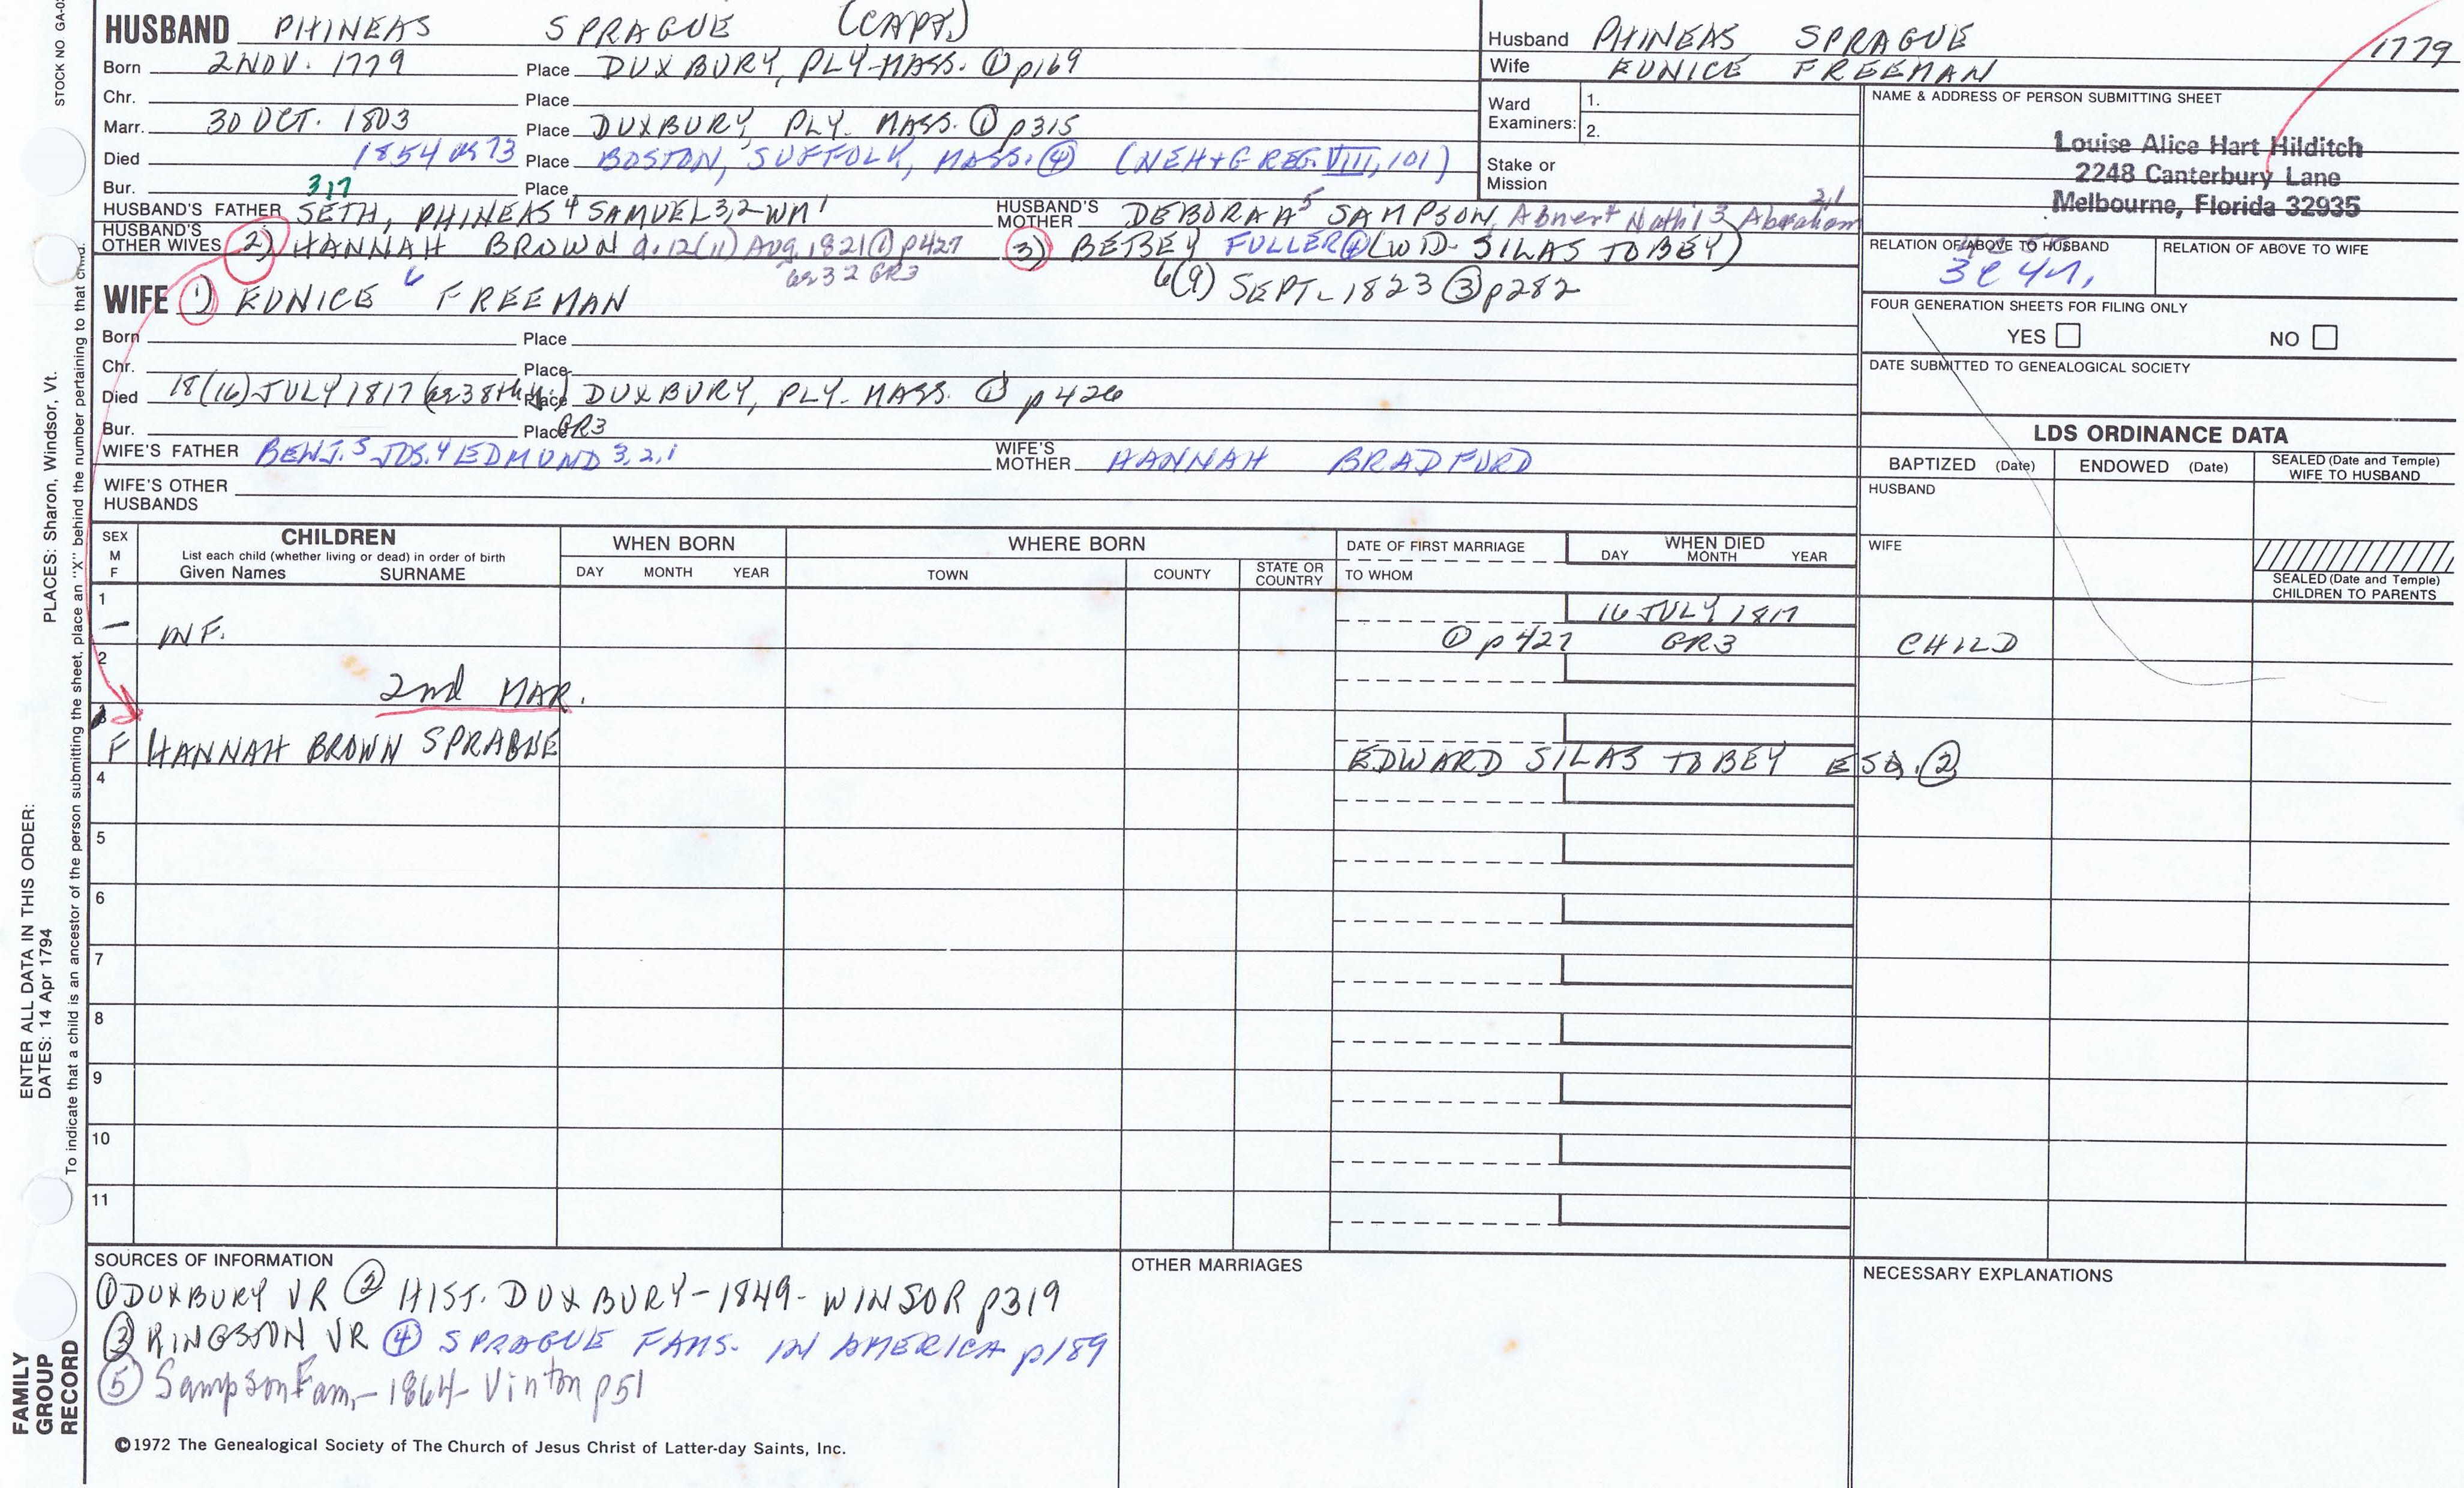 STOCK NO GA-0
HUSBAND PHINEAS SPRAGUE (CAPT)
Born 2 NOV. 1779 Place DUXBURY, PLY-MASS. ① p169
Chr. Place
Marr. 30 OCT. 1803 Place DUXBURY, PLY. MASS. ① p315
Died 1854 ae 73 Place BOSTON, SUFFOLK, MASS. ④ (NEH+G REG. VIII, 101)
Bur. 317 Place
HUSBAND'S FATHER SETH, PHINEAS 4 SAMUEL 3,2 - WM 1 HUSBAND'S MOTHER DEBORAH 5 SAMPSON, Abner 4 Nath'l 3 Abraham 2,1
HUSBAND'S OTHER WIVES 2) HANNAH BROWN d. 12(11) AUG. 1821 ① p427 3) BETSEY FULLER ④ (WID- SILAS TOBEY)
ae 32 GR3 6(9) SEPT- 1823 ③ p282
WIFE 1) EUNICE 6 FREEMAN
Born Place
Chr. Place
Died 18(16) JULY 1817 (ae 38th y.) Place DUXBURY, PLY- MASS. ① p 426
Bur. Place GR3
WIFE'S FATHER BENJ. 5 JOS. 4 EDMUND 3,2,1 WIFE'S MOTHER HANNAH BRADFORD
WIFE'S OTHER HUSBANDS
Husband PHINEAS SPRAGUE 1779
Wife EUNICE FREEMAN
Ward Examiners: 1.
2.
Stake or Mission
NAME & ADDRESS OF PERSON SUBMITTING SHEET
Louise Alice Hart Hilditch
2248 Canterbury Lane
Melbourne, Florida 32935
RELATION OF ABOVE TO HUSBAND RELATION OF ABOVE TO WIFE
FOUR GENERATION SHEETS FOR FILING ONLY
YES NO
DATE SUBMITTED TO GENEALOGICAL SOCIETY
LDS ORDINANCE DATA
BAPTIZED (Date) ENDOWED (Date) SEALED (Date and Temple) WIFE TO HUSBAND
HUSBAND
WIFE
SEALED (Date and Temple) CHILDREN TO PARENTS
SEX M F CHILDREN WHEN BORN WHERE BORN DATE OF FIRST MARRIAGE WHEN DIED
List each child (whether living or dead) in order of birth
Given Names SURNAME DAY MONTH YEAR TOWN COUNTY STATE OR COUNTRY TO WHOM DAY MONTH YEAR
1 16 JULY 1817
— INF. ① p 427 GR3 CHILD
2
2nd MAR.
3
F HANNAH BROWN SPRAGUE EDWARD SILAS TOBEY ESQ. ②
4
5
6
7
8
9
10
11
SOURCES OF INFORMATION OTHER MARRIAGES NECESSARY EXPLANATIONS
① DUXBURY VR ② HIST. DUXBURY-1849- WINSOR p319
③ KINGSTON VR ④ SPRAGUE FAMS. IN AMERICA p189
⑤ Sampson Fam.- 1864- Vinton p51
©1972 The Genealogical Society of The Church of Jesus Christ of Latter-day Saints, Inc.
FAMILY GROUP RECORD
ENTER ALL DATA IN THIS ORDER:
DATES: 14 Apr 1794
PLACES: Sharon, Windsor, Vt.
To indicate that a child is an ancestor of the person submitting the sheet, place an "X" behind the number pertaining to that child.